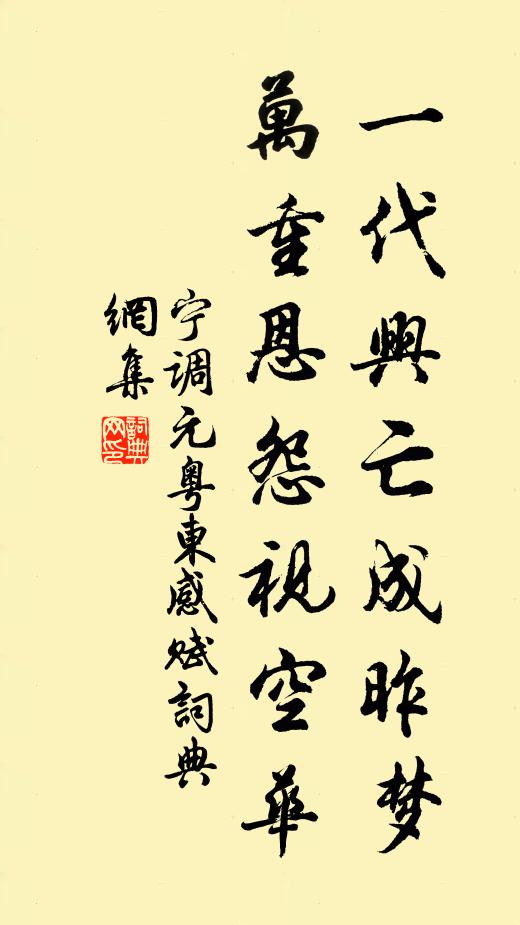 一代興亡成昨梦
萬重恩怨視空華
宁调元粤東感赋詞典
網集
詞典網印